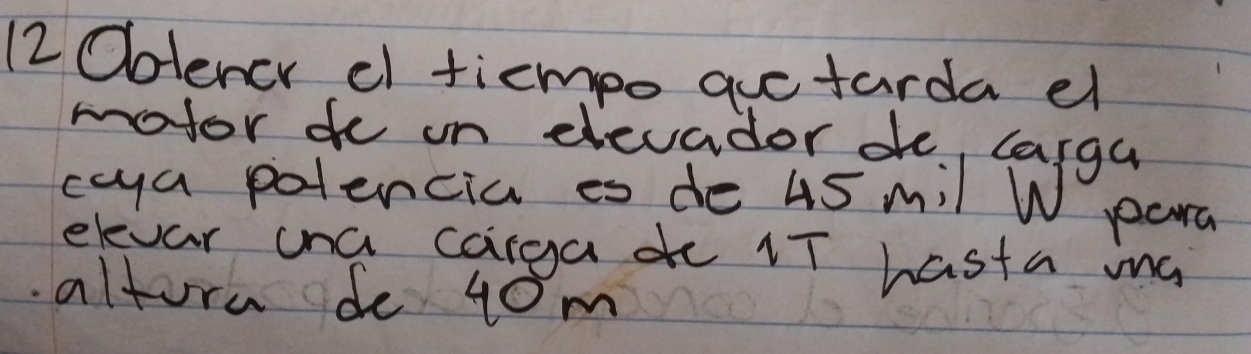 12 Obtener el tiempo que tarda el
motor de un elevador de carga
cuya potencia es de 45 mil W para
elevar una carga de 1T hasta una
altura de 40m